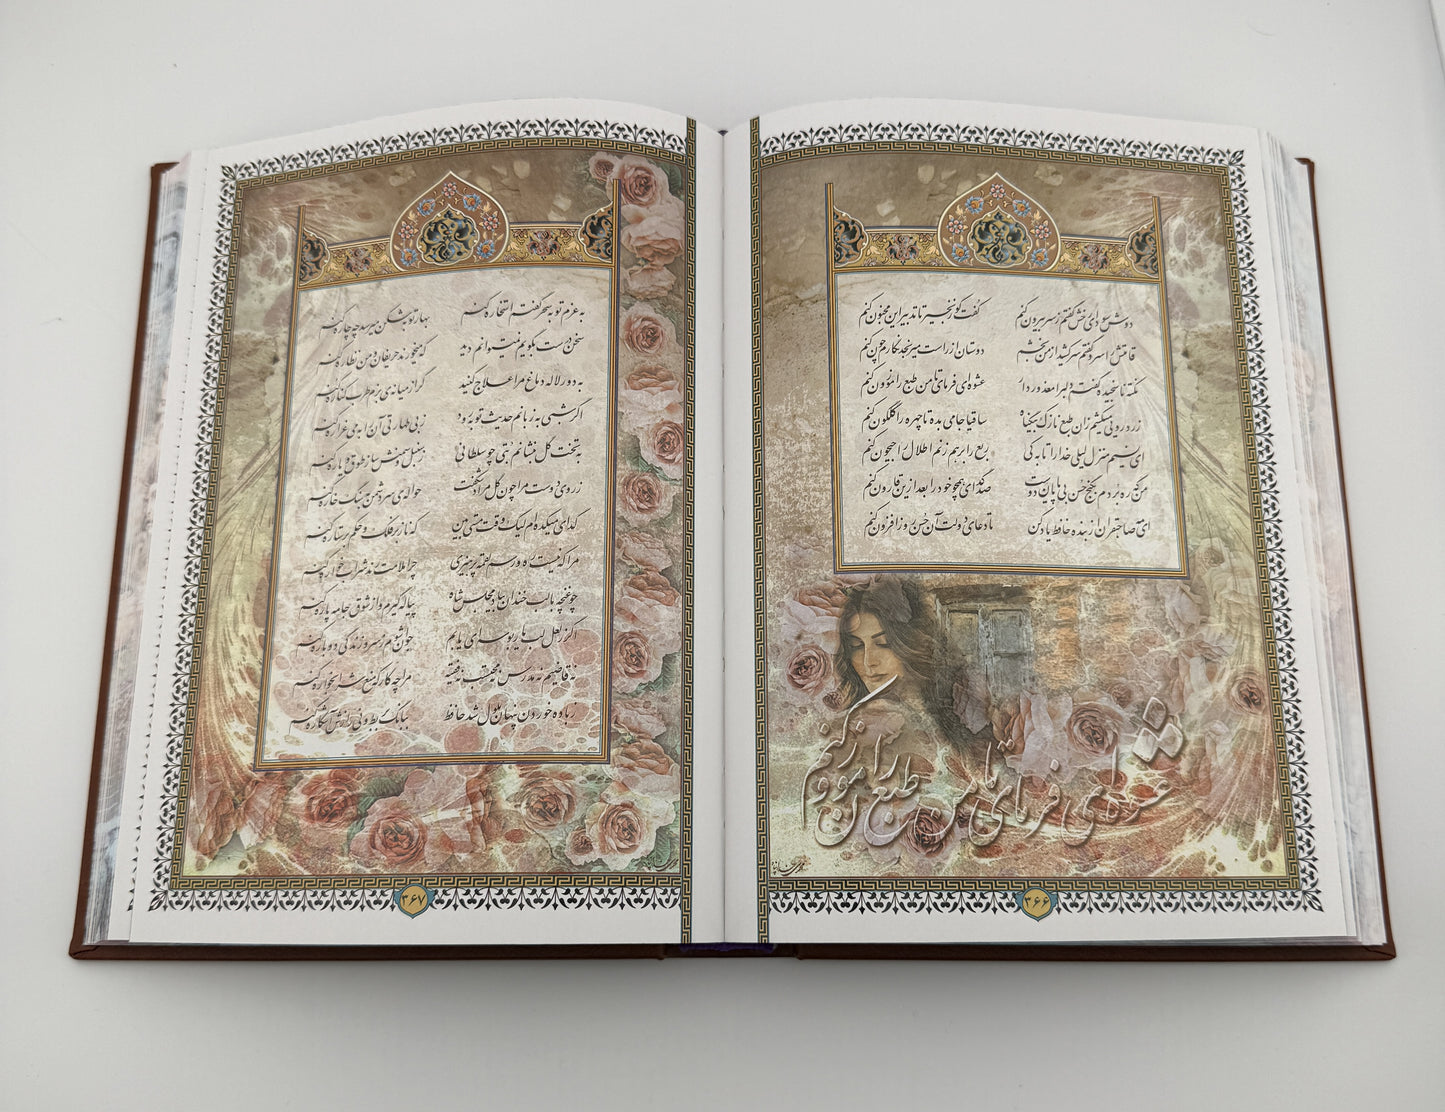 دوش سودای رخش گفتم ز سر بیرون کنم    گفت کو زنجیر تا تدبیر این مجنون کنم
قامتش را سرو گفتم سر کشید از من به خشم    دوستان از راست می‌رنجد نگارم چون کنم
نکته ناسنجیده گفتم دلبرا معذور دار    عشوه‌ای فرمای تا من طبع را موزون کنم
زردرویی می‌کشم زان طبع نازک بی‌گناه    ساقیا جامی بده تا چهره را گلگون کنم
ای نسیم منزل لیلی خدا را تا به کی    ربع را برهم زنم اطلال را جیحون کنم
من که ره بردم به گنج حسن بی‌پایان دوست    صد گدای همچو خود را بعد از این قارون کنم
ای مه صاحبقران از بنده حافظ یاد کن    تا دعای دولت آن حسن روزافزون کنم
عشوه‌ای فرمای تا من طبع را موزون کنم
۳۶۶
به عزم توبه سحر گفتم استخاره کنم    بهار توبه‌شکن می‌رسد چه چاره کنم
سخن درست بگویم نمی‌توانم دید    که می خورند حریفان و من نظاره کنم
به دور لاله دماغ مرا علاج کنید    گر از میانه‌ی بزم طرب کناره کنم
اگر شبی به زبانم حدیث توبه رود    ز بی طهارتی آن را به می غراره کنم
به تخت گل بنشانم بتی چو سلطانی    ز سنبل و سمنش ساز طوق و یاره کنم
ز روی دوست مرا چون گل مراد شکفت    حواله‌ی سر دشمن به سنگ خاره کنم
گدای میکده‌ام لیک وقت مستی بین    که ناز بر فلک و حکم بر ستاره کنم
مرا که نیست ره و رسم لقمه پرهیزی    چرا ملامت رند شرابخواره کنم
چو غنچه با لب خندان به یاد مجلس شاه    پیاله گیرم و از شوق جامه پاره کنم
اگر ز لعل لب یار بوسه‌ای یابم    جوان شوم ز سر و زندگی دوباره کنم
نه قاضیم نه مدرس نه محتسب نه فقیه    مرا چه کار که منع شرابخواره کنم
ز باده خوردن پنهان ملول شد حافظ    به بانگ بربط و نی رازش آشکاره کنم
۳۶۷